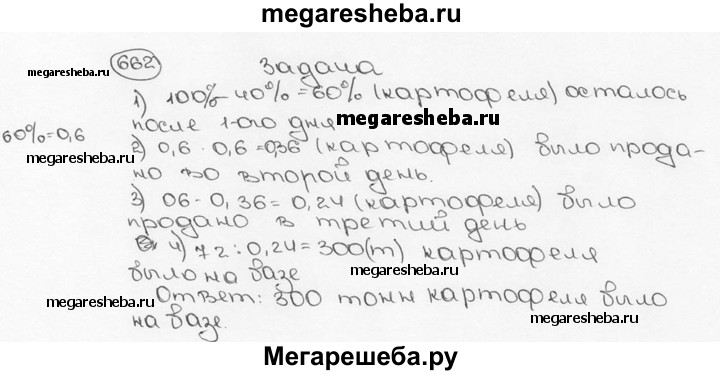 megaresheba.ru
662 задача
megaresheba.ru
1) 100%-40%=60% (картофеля) осталось
60%=0,6
после 1-ого дня megaresheba.ru
megaresheba.ru
2) 0,6 · 0,6 =0,36 (картофеля) было прода-
но во второй день.
3) 06 - 0,36 = 0,24 (картофеля) было
продано в третий день
4) 72 : 0,24 = 300(т) картофеля
было на базе megaresheba.ru
megaresheba.ru
Ответ: 300 тонн картофеля было
на базе. megaresheba.ru
Мегарешеба.ру